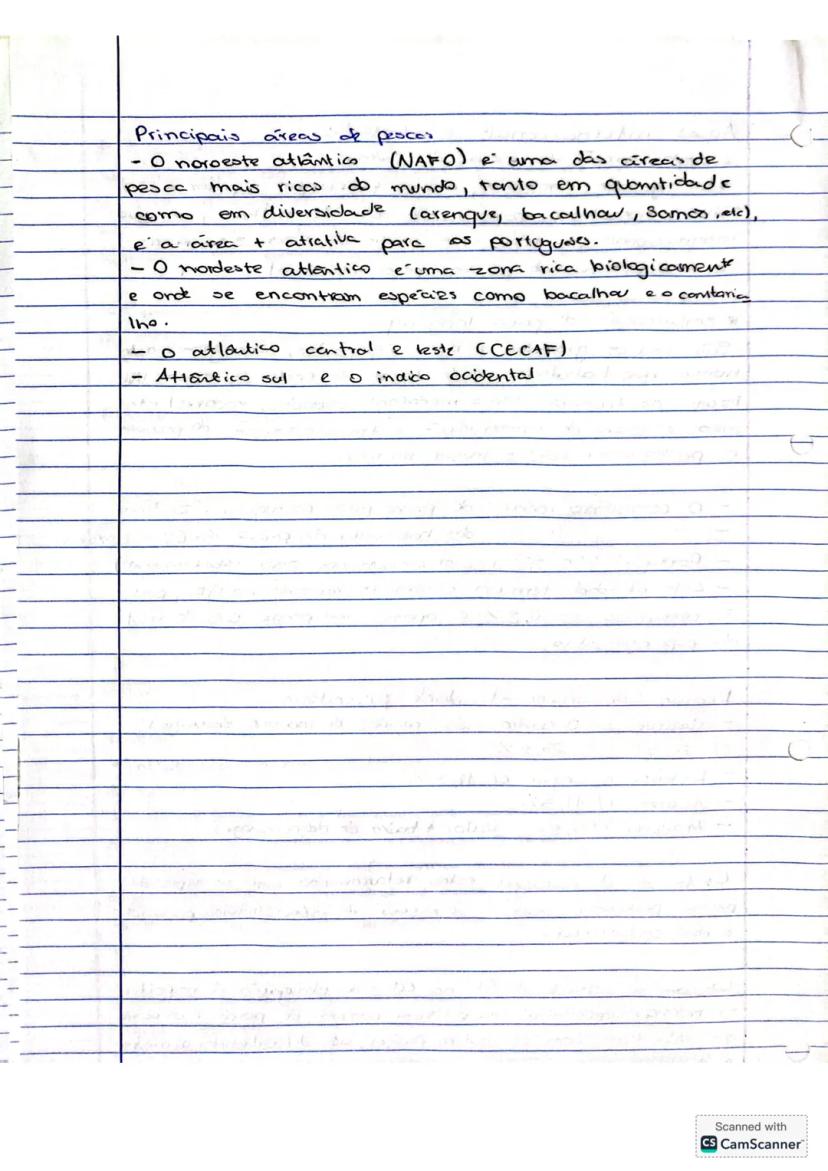 Principais áreas de pesca:
- O noroeste atlântico (NAFO) é uma das áreas de
pesca mais ricas do mundo, tanto em quantidade
como em diversidade (arenque, bacalhau, , etc),
é a área + atrativa para os portugueses.
- O nordeste atlântico é uma zona rica biologicament
e onde se encontram espécies como bacalhau e o cantaria
lho.
- O atlântico central e leste (CECAF)
- Atlântico sul e o indico ocidental
Scanned with
CS CamScanner